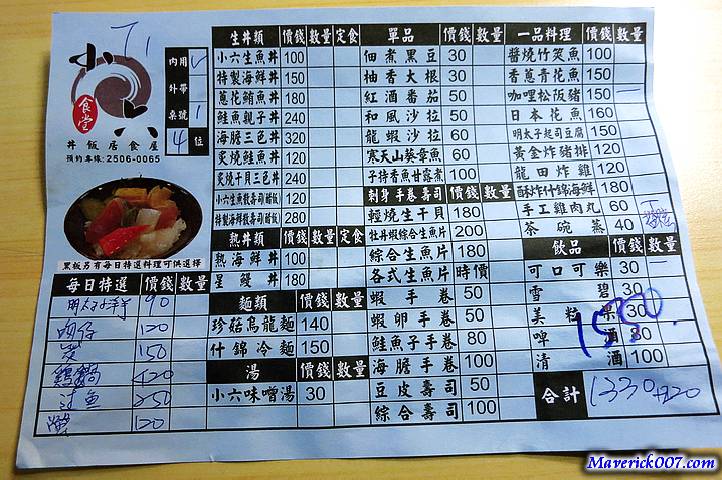 小六
食堂
丼飯居食屋
預約專線:2506-0065
內用 V
外帶
桌號 1
4 位
黑板另有每日特選料理可供選擇
每日特選 價錢 數量
90
吻仔 120
150
雞鍋 420
250
120
生丼類 價錢 數量 定食
小六生魚丼 100
特製海鮮丼 150
蔥花鮪魚丼 180
鮭魚親子丼 240
海膽三色丼 320
炙燒鮭魚丼 120
炙燒干貝三色丼 240
小六生魚散壽司(醋飯) 120
特製海鮮散壽司(醋飯) 280
熱丼類 價錢 數量 定食
熱海鮮丼 100
星鰻丼 180
麵類 價錢 數量
珍菇烏龍麵 140
什錦冷麵 150
湯 價錢 數量
小六味噌湯 30
單品 價錢 數量
佃煮黑豆 30
柚香大根 30
紅酒番茄 50
和風沙拉 50
龍蝦沙拉 60
寒天山葵章魚 60
子持香魚甘露煮 100
刺身手卷壽司 價錢 數量
輕燒生干貝 180
牡丹蝦綜合生魚片 200
綜合生魚片 180
各式生魚片 時價
蝦手卷 50
蝦卵手卷 50
鮭魚子手卷 80
海膽手卷 100
豆皮壽司 50
綜合壽司 100
一品料理 價錢 數量
醬燒竹筴魚 100
香蔥青花魚 150
咖哩松阪豬 150 一
日本花魚 160
明太子起司豆腐 150
黃金炸豬排 120
龍田炸雞 120
酥炸什錦海鮮 180
手工雞肉丸 60
茶碗蒸 40
飲品 價錢 數量
可口可樂 30 一
雪碧 30
美粒果 30
啤酒 80
清酒 100
1550
合計 1330+220
Maverick007.com